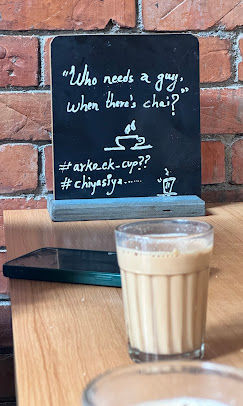 "Who needs a guy,
when there's chai?"
#arko_ek_cup??
#chiyasiya......